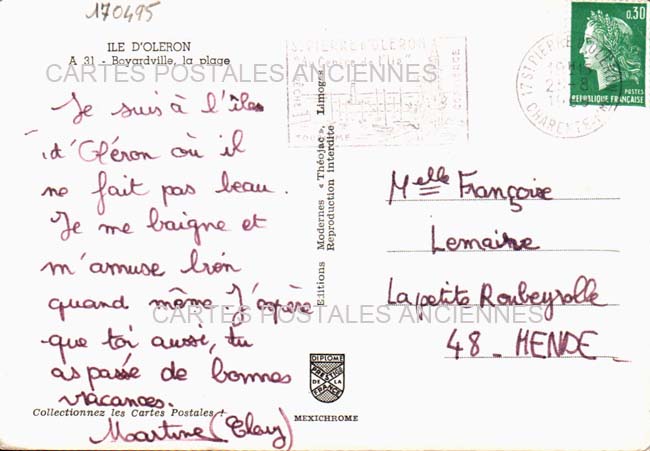 170495
ILE D'OLERON
A 31 - Boyardville, la plage
CARTES POSTALES ANCIENNES
Je suis à l'îles
d'Oléron où il
ne fait pas beau.
Je me baigne et
m'amuse bien
quand même J'espère
que toi aussi, tu
as passé de bonnes
vacances.
Martine
Collectionnez les Cartes Postales !
Editions Modernes « Théojac », Limoges
Reproduction interdite
ST PIERRE D'OLERON
0,30
POSTES
REPUBLIQUE FRANÇAISE
17 ST PIERRE D'OLERON
CHARENTE-MME
Melle Françoise
Lemaire
La petite Roubeyrolle
48 - MENDE
CARTES POSTALES ANCIENNES
DIPLOME
PRESTIGE
DE LA
FRANCE
MEXICHROME